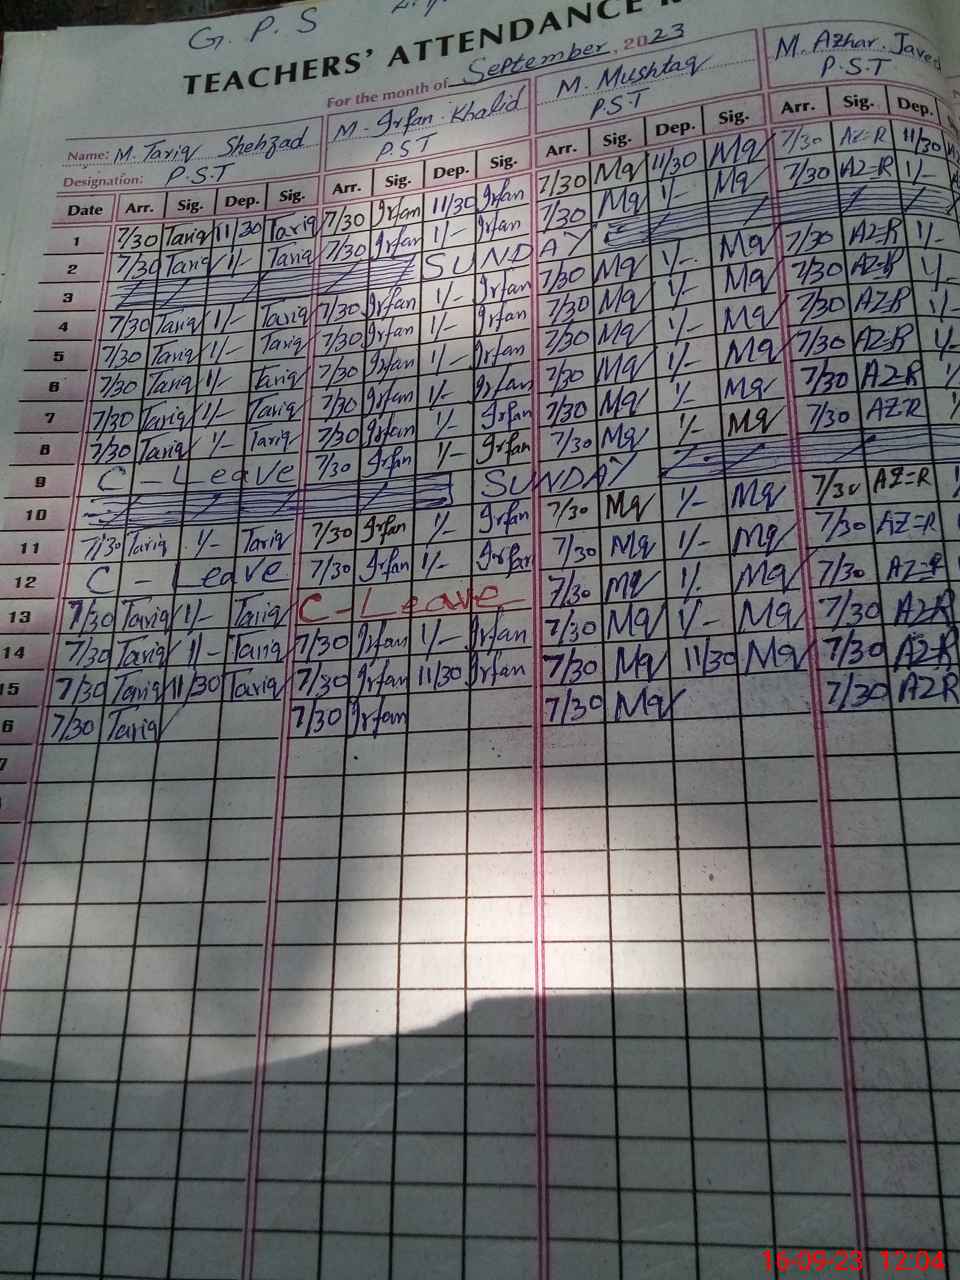 G. P. S
TEACHERS' ATTENDANCE
For the month of September, 2023
Name: M. Tariq Shehzad M. Irfan Khalid M. Mushtaq M. Azhar Javed
Designation: P.S.T P.S.T P.S.T P.S.T
Date Arr. Sig. Dep. Sig. Arr. Sig. Dep. Sig. Arr. Sig. Dep. Sig. Arr. Sig. Dep.
1 7/30 Tariq 11/30 Tariq 7/30 Irfan 11/30 Irfan 7/30 Mq 11/30 Mq 7/30 AZ=R 11/30
2 7/30 Tariq 1/- Tariq 7/30 Irfan 1/- Irfan 7/30 Mq 1/- Mq 7/30 AZ=R 1/-
3 SUNDAY
4 7/30 Tariq 1/- Tariq 7/30 Irfan 1/- Irfan 7/30 Mq 1/- Mq 7/30 AZ=R 1/-
5 7/30 Tariq 1/- Tariq 7/30 Irfan 1/- Irfan 7/30 Mq 1/- Mq 7/30 AZ=R 1/-
6 7/30 Tariq 1/- Tariq 7/30 Irfan 1/- Irfan 7/30 Mq 1/- Mq 7/30 AZ=R 1/-
7 7/30 Tariq 1/- Tariq 7/30 Irfan 1/- Irfan 7/30 Mq 1/- Mq 7/30 AZ=R 1/-
8 7/30 Tariq 1/- Tariq 7/30 Irfan 1/- Irfan 7/30 Mq 1/- Mq 7/30 AZ=R
9 C - Leave 7/30 Irfan 1/- Irfan 7/30 Mq 1/- Mq 7/30 AZ=R
10 SUNDAY
11 7/30 Tariq 1/- Tariq 7/30 Irfan 1/- Irfan 7/30 Mq 1/- Mq 7/30 AZ=R
12 C - Leave 7/30 Irfan 1/- Irfan 7/30 Mq 1/- Mq 7/30 AZ=R
13 7/30 Tariq 1/- Tariq C - Leave 7/30 Mq 1/- Mq 7/30 AZ=R
14 7/30 Tariq 1/- Tariq 7/30 Irfan 1/- Irfan 7/30 Mq 1/- Mq 7/30 AZ=R
15 7/30 Tariq 11/30 Tariq 7/30 Irfan 11/30 Irfan 7/30 Mq 11/30 Mq 7/30 AZ=R
6 7/30 Tariq 7/30 Irfan 7/30 Mq 7/30 AZ=R
7
16-09-23 12:04